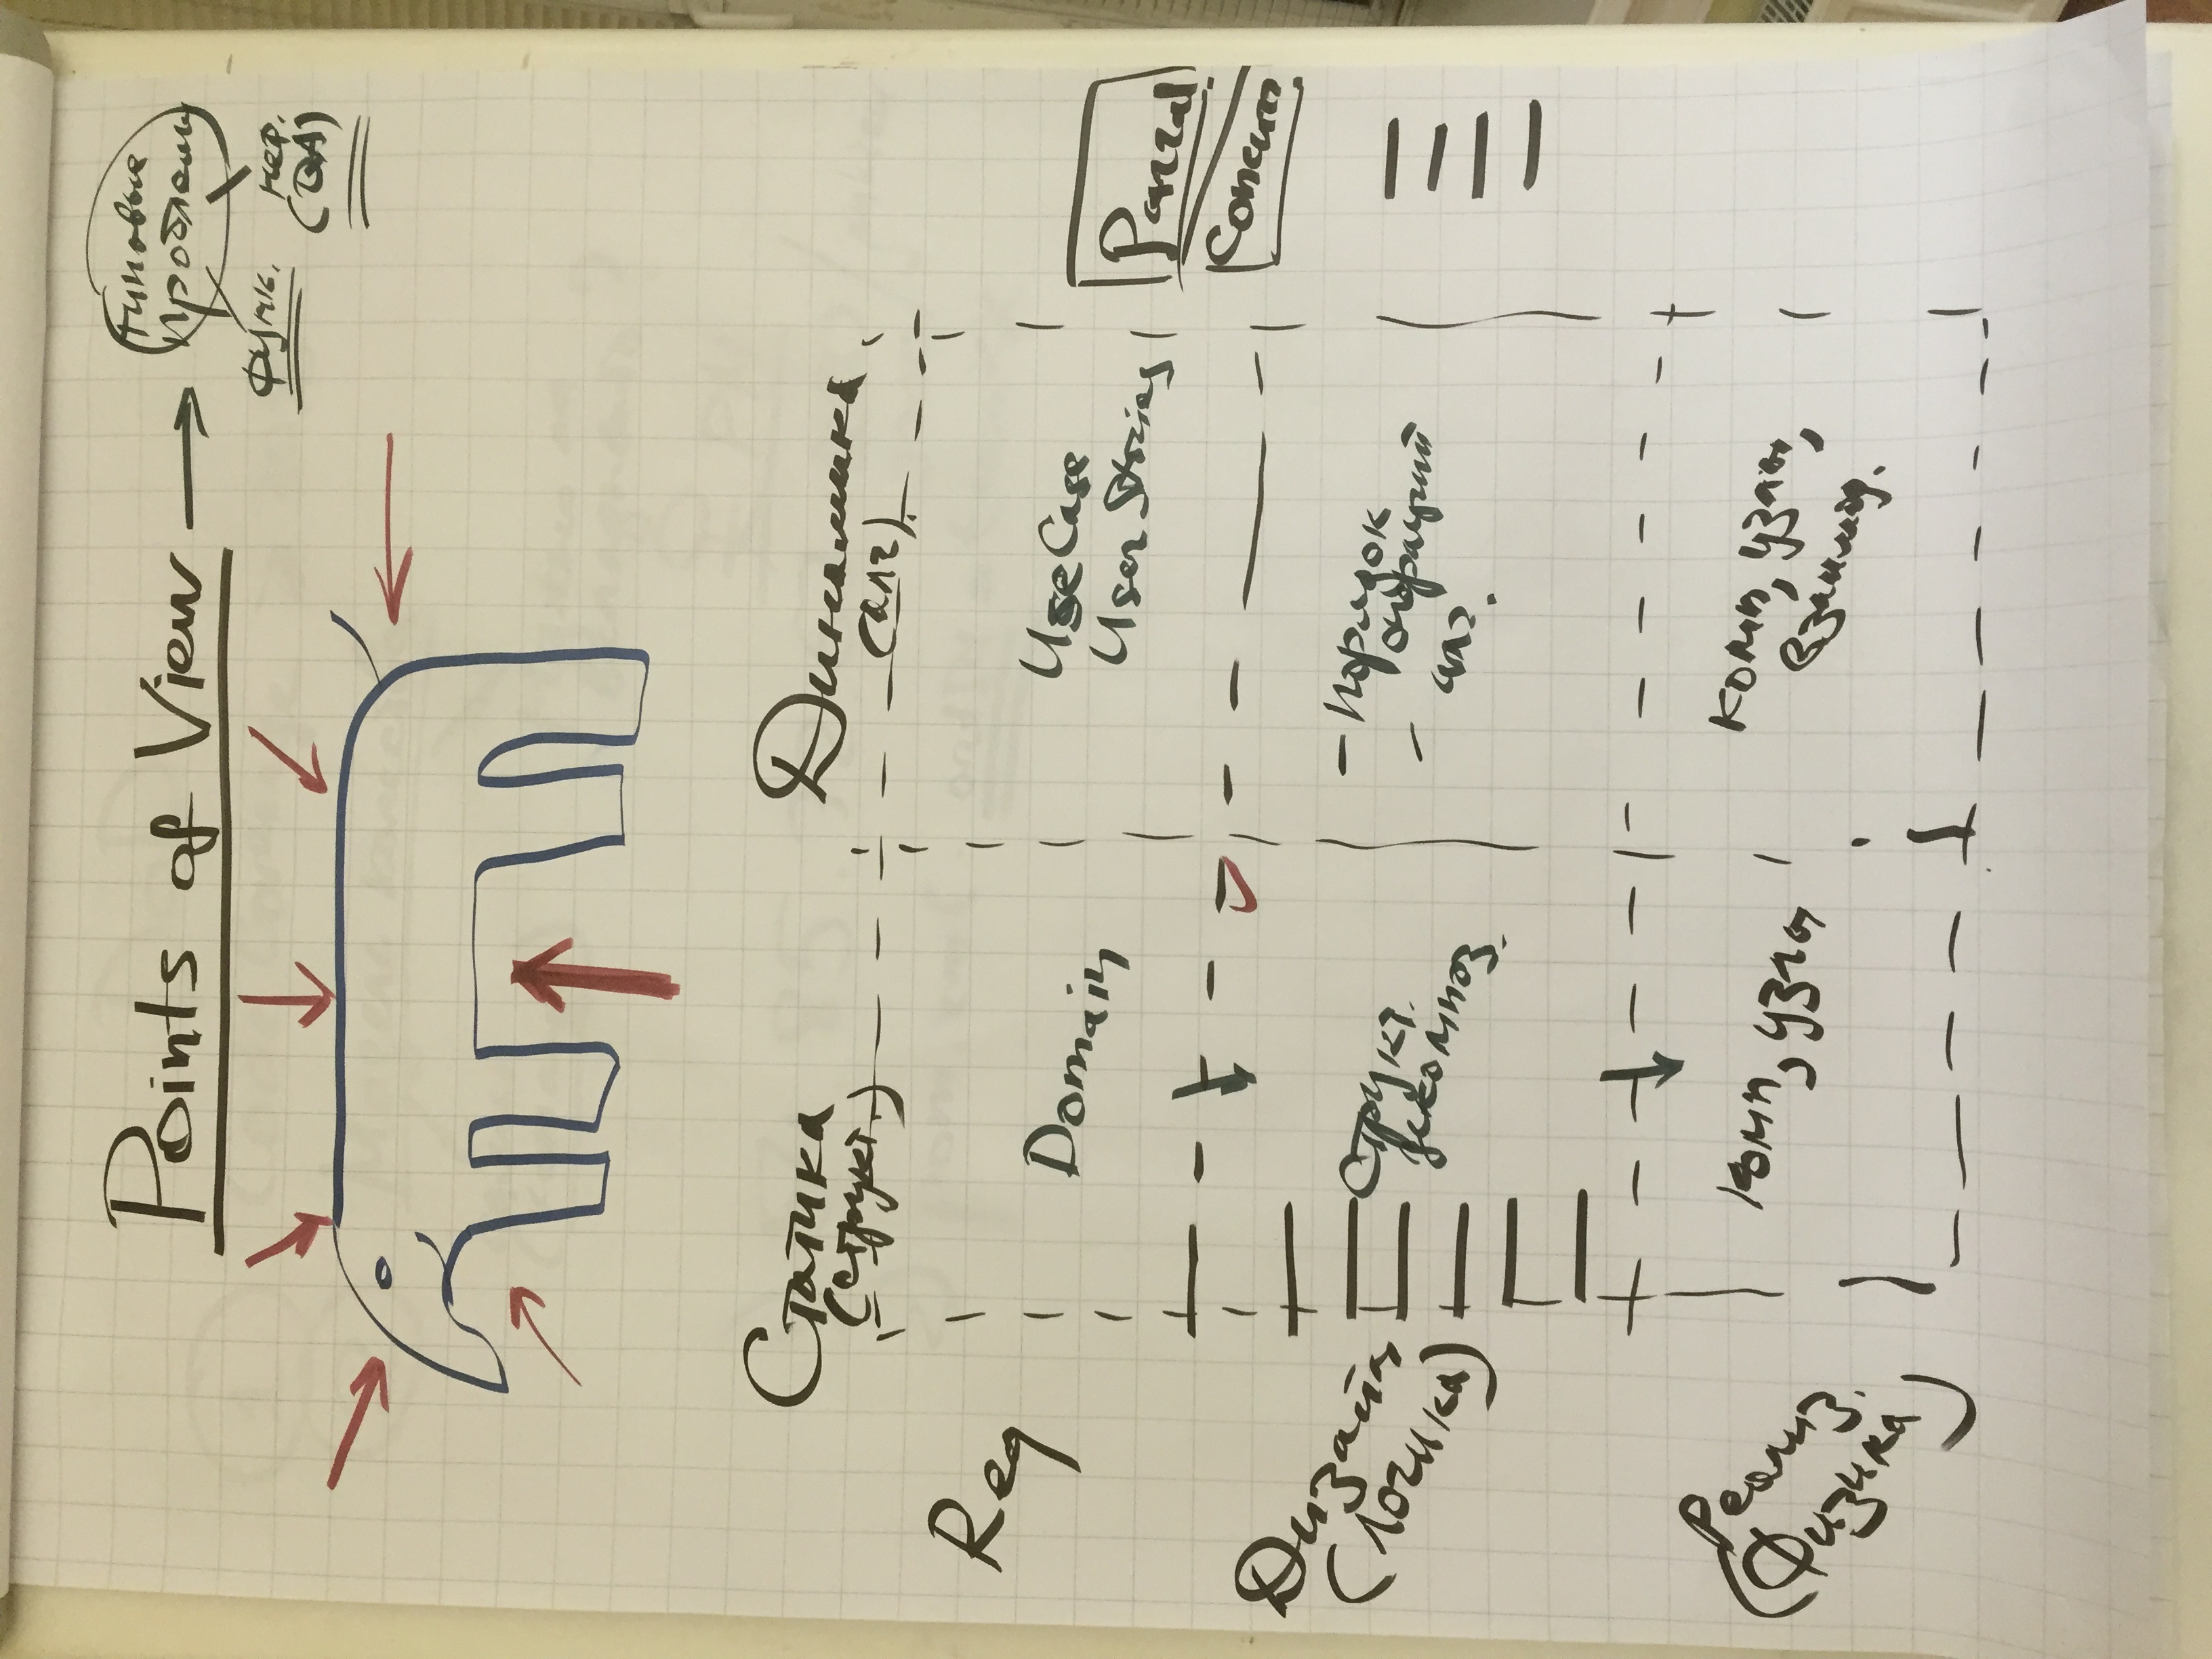 Points of View
типовые
проблемы
функ.
неф.
(QA)
Статика
(структ.)
Динамика
(алг).
Req
Domain
UseCase
User Stories
Parral.
Concurr.
Дизайн
(Логика)
Структ.
декомпоз.
- Порядок
операций
- алг.
Реализ.
(Физика)
комп, узлы
комп, узлы,
взаимод.